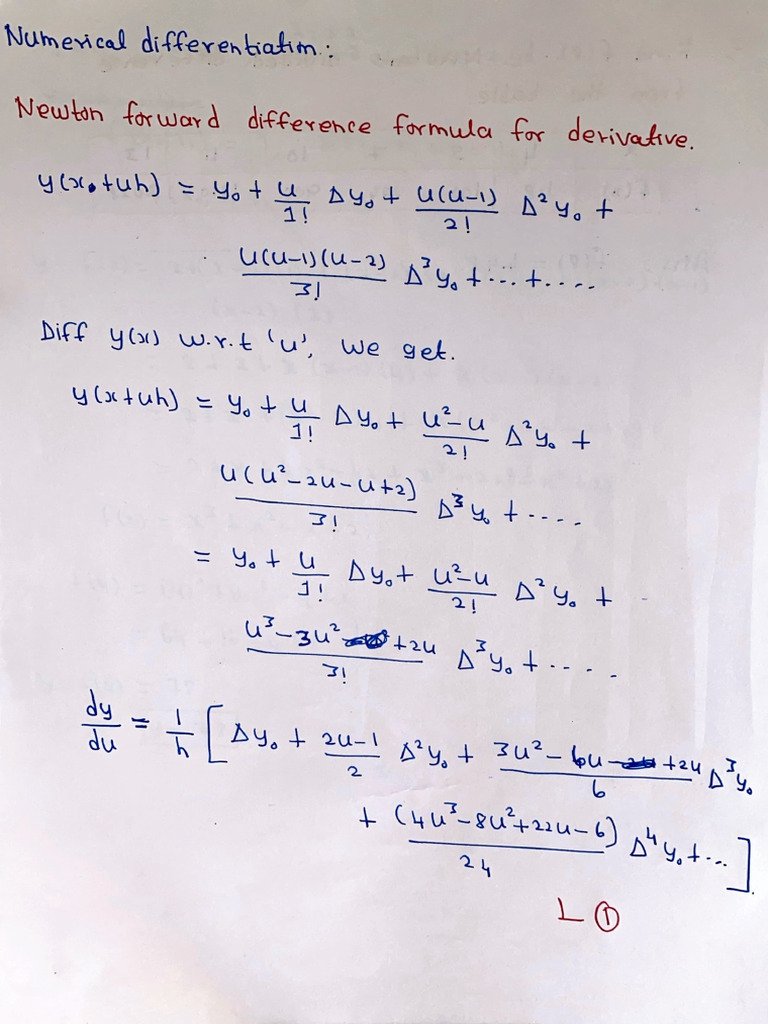 Numerical differentiation:
Newton forward difference formula for derivative.
y(x₀+uh) = y₀ + u/1! Δy₀ + u(u-1)/2! Δ²y₀ +
u(u-1)(u-2)/3! Δ³y₀ + ... + ....
Diff y(x) w.r.t 'u', we get.
y(x+uh) = y₀ + u/1! Δy₀ + u²-u/2! Δ²y₀ +
u(u²-2u-u+2)/3! Δ³y₀ + ....
= y₀ + u/1! Δy₀ + u²-u/2! Δ²y₀ +
u³-3u²+2u/3! Δ³y₀ + ....
dy/du = 1/h [Δy₀ + 2u-1/2 Δ²y₀ + 3u²-6u+2u/6 Δ³y₀
+ (4u³-8u²+22u-6)/24 Δ⁴y₀ + ...].
L ①